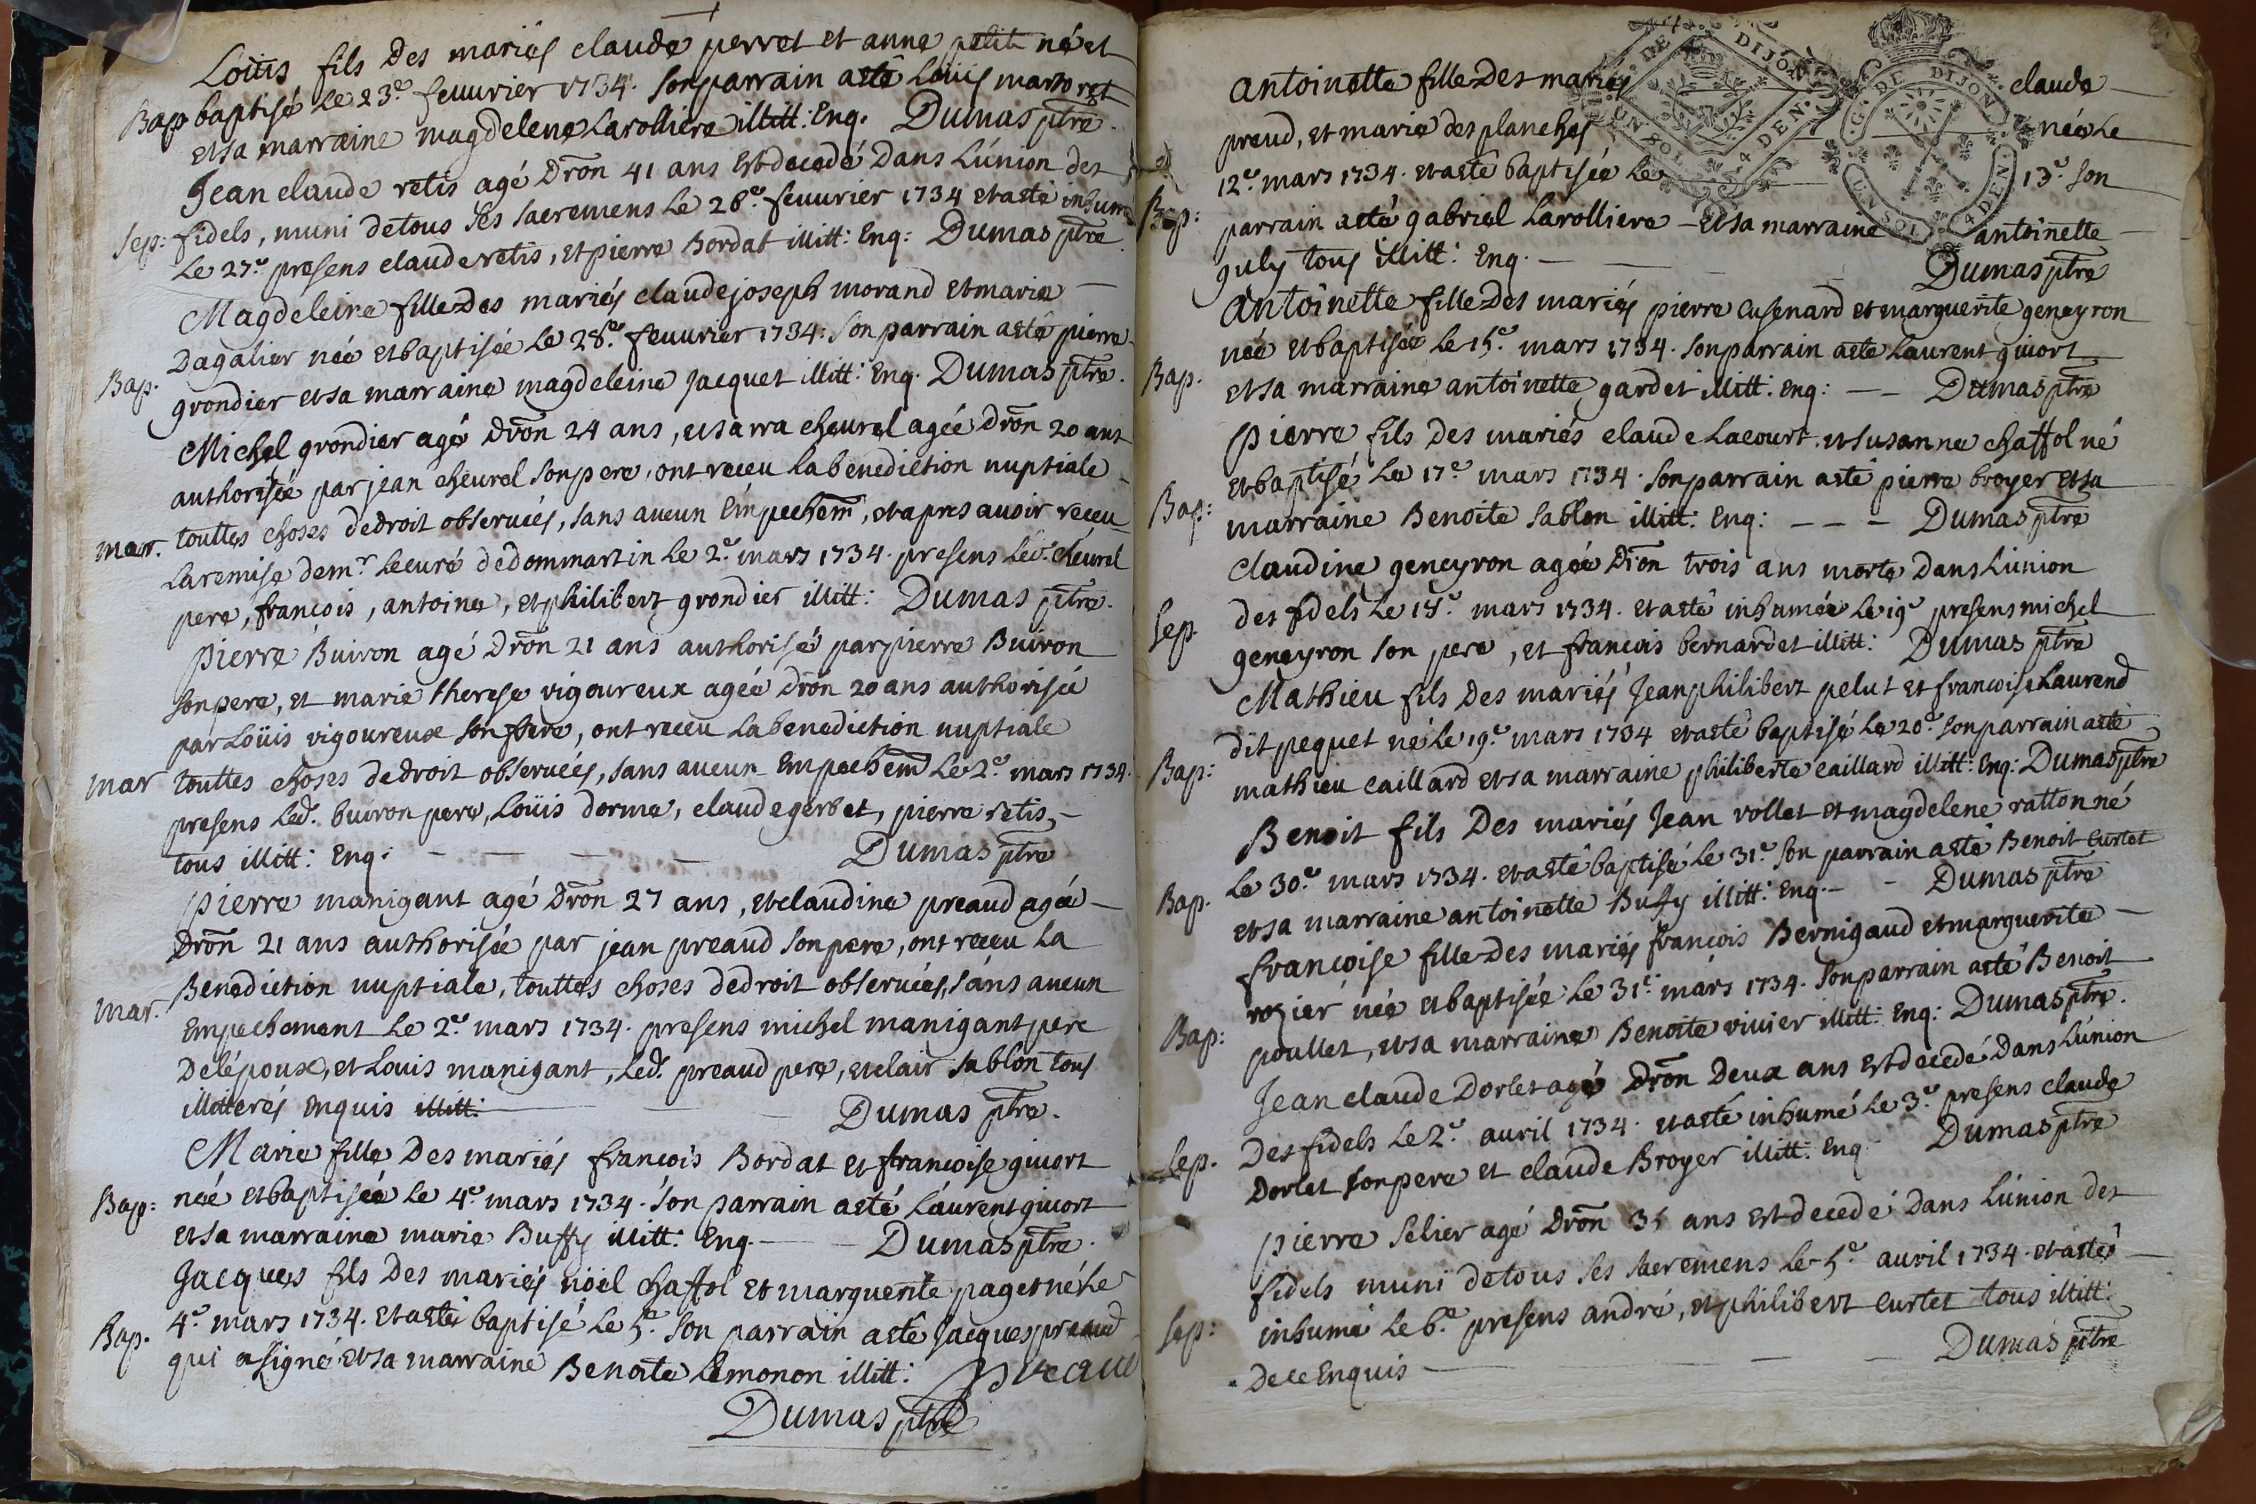 Loüis fils Des mariés claude perret et anne petit né et
Bap baptisé le 23.e feuurier 1734. son parrain a esté Loüis martoret
et sa marraine magdelene Larolliere illitt: Enq. Dumas ptre.
Jean claude retis agé Dron 41 ans Est decedé Dans L'union des
Sep: fidels, muni de tous ses sacremens le 26.e feuurier 1734 et a esté inhumé
le 27.e presens claude retis, et pierre Bordat illitt: Enq: Dumas ptre
Magdeleine fille Des mariés claude joseph morand et marie
Dagalier née et baptisée le 28.e feuurier 1734: son parrain a esté pierre
Bap. grondier et sa marraine magdeleine jacquet illitt: Enq. Dumas ptre.
Michel grondier agé dron 24 ans, et sarra cheurel agée dron 20 ans
authorisée par jean cheurel son pere, ont receu la benediction nuptiale
mar. touttes choses de droit obseruées, sans aucun Empechem, et apres auoir receu
la remise de m.r le curé de dommartin le 2.e mars 1734. presens led. cheurel
pere, françois, antoine, et philibert grondier illitt: Dumas ptre.
pierre Buiron agé Dron 21 ans authorisé par pierre Buiron
son pere, et marie therese vigoureux agée dron 20 ans authorisée
par Loüis vigoureux son frere, ont receu la benediction nuptiale
mar touttes choses de droit obseruées, sans aucun Empechem le 2.e mars 1734.
presens led. buiron pere, Loüis dorme, claude gerbet, pierre retis,
tous illitt: Enq: Dumas ptre
pierre manigant agé Dron 27 ans, et claudine preaud agée
Dron 21 ans authorisée par jean preaud son pere, ont receu la
Benediction nuptiale, touttes choses de droit obseruées, sans aucun
mar. Empechement le 2.e mars 1734. presens michel manigant pere
De l'époux, et Louis manigant, led. preaud pere, et clair sablon tous
illitterés Enquis illitt: Dumas ptre.
Marie fille Des mariés françois Bordat et françoise giuort
Bap: née et baptisée le 4.e mars 1734. son parrain a esté Laurent giuort
et sa marraine marie Buffy illitt: Enq. Dumas ptre.
Jacques fils Des mariés nöel chaffol et marguerite paget né le
Bap. 4.e mars 1734. et a esté baptisé le 5.e son parrain a esté Jacques preaud
qui a signé et sa marraine Benoite Lemonon illitt: preaud
Dumas ptre
G. DE DIJON. UN SOL 4 DEN.
G. DE DIJON UN SOL 4 DEN.
antoinette fille Des mariés claude
preud, et marie des planches née le
12.e mars 1734. et a esté baptisée le 13.e son
Bap: parrain a esté gabriel Larolliere et sa marraine antoinette
guly tous illitt: Enq. Dumas ptre
antoinette fille Des mariés pierre cusenard et marguerite geneyron
née et baptisée le 15.e mars 1734. son parrain a esté Laurent giuort
Bap. et sa marraine antoinette gardet illitt: enq: Dumas ptre
pierre fils Des mariés claude Lacourt et susanne chaffol né
et baptisé le 17.e mars 1734. son parrain a esté pierre broyer et sa
Bap: marraine Benoite sablon illitt: Enq: Dumas ptre
claudine geneyron agée Dron trois ans morte Dans L'union
Sep. des fidels le 18.e mars 1734. et a esté inhumée le 19.e presens michel
geneyron son pere, et françois bernardet illitt: Dumas ptre
Mathieu fils Des mariés Jean philibert pelut et françoise Laurend
dit pequet né le 19.e mars 1734 et a esté baptisé le 20.e son parrain a esté
Bap: mathieu caillard et sa marraine philiberte caillard illitt: Enq: Dumas ptre
Benoit fils Des mariés Jean vollet et magdelene ratton né
le 30.e mars 1734. et a esté baptisé le 31.e son parrain a esté Benoit Curtet
Bap. et sa marraine antoinette Buffy illitt: Enq. Dumas ptre
françoise fille Des mariés françois Bernigaud et marguerite
rozier née et baptisée le 31.e mars 1734. son parrain a esté Benoit
Bap: poullet, et sa marraine Benoite viuier illitt: Enq: Dumas ptre.
Jean claude Dorlet agé Dron Deux ans Est decedé Dans L'union
Sep. Des fidels le 2.e auril 1734. et a esté inhumé le 3.e presens claude
Dorlet son pere et claude Broyer illitt: Enq. Dumas ptre
pierre selier agé Dron 35 ans Est decedé Dans L'union des
fidels muni de tous ses sacremens le 5.e auril 1734. et a esté
Sep: inhumé le 6.e presens andré, et philibert curtet tous illitt:
De ce Enquis Dumas ptre